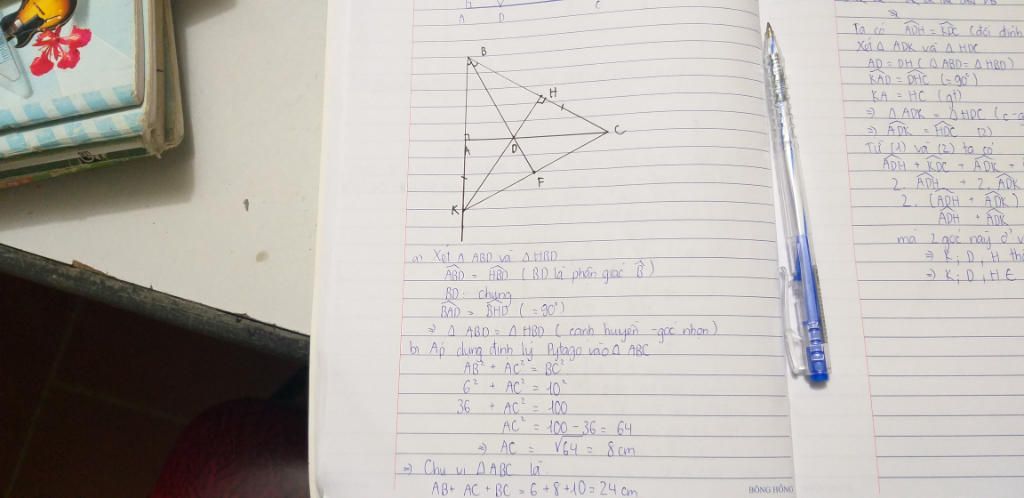 A D C
B
H
C
A
D
F
K
a) Xét △ ABD và △ HBD
ABD = HBD ( BD là phân giác B )
BD: chung
BAD = BHD ( = 90° )
⇒ △ ABD = △ HBD ( cạnh huyền - góc nhọn )
b) Áp dụng định lý Pytago vào △ ABC
AB² + AC² = BC²
6² + AC² = 10²
36 + AC² = 100
AC² = 100 - 36 = 64
⇒ AC = √64 = 8 cm
⇒ Chu vi △ ABC là
AB + AC + BC = 6 + 8 + 10 = 24 cm
ĐÔNG HỒNG
Ta có ADH = KDC ( đối đỉnh
Xét △ ADK và △ HDC
AD = DH ( △ ABD = △ HBD )
KAD = DHC ( = 90° )
KA = HC ( gt )
⇒ △ ADK = △ HDC ( c-g
⇒ ADK = HDC (2)
Từ (1) và (2) ta có
ADH + KDC + ADK +
2. ADH + 2. ADK
2. ( ADH + ADK )
ADH + ADK
mà 2 góc này ở v
⇒ K; D, H th
⇒ K; D, H ∈